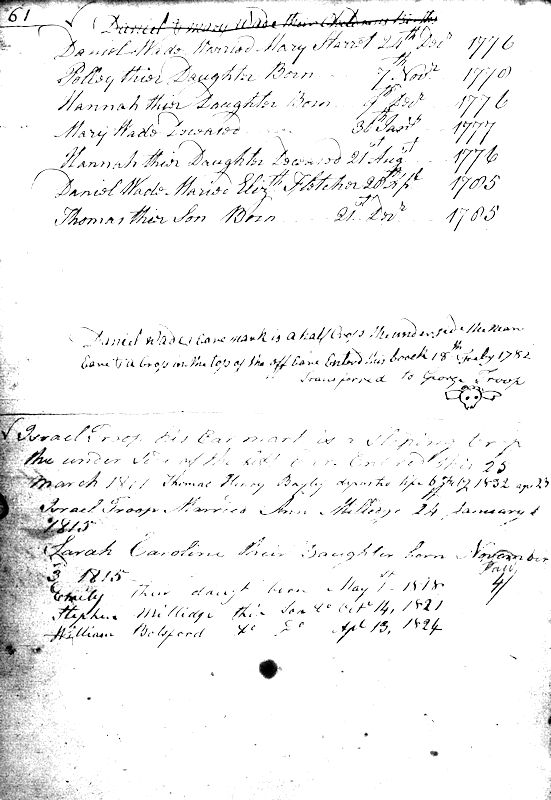 61
Daniel & mary Wade their Childrens Births
Daniel Wade Married Mary Starret 24th Decr 1776
Polley thier Daughter Born 7th Novr 1770
Hannah thier Daughter Born 9th Decr 1776
Mary Wade Deceased 31st Janr 1777
Hannah thier Daughter Deceased 21st Augt 1776
Daniel Wade Maried Elizth Fletcher 20th Sept 1785
Thomas thier Son Born 21st Decr 1785
Daniel Wade Eare mark is a half Cross the under side the Near
Eare & a Crop in the top of the off Eare Enterd his brock 18th July 1782
Transferred to George Troop
Israel Troop his Ear mark is a Sloping Crop
the under Side of the Left Ear Enterd this 25
march 1811 Thomas Henry Bagley departed life 1832 age 23
Israel Troop Married Ann Millidge 24 January
1815
Sarah Caroline their Daughter born November
3d 1815
Emily their daugt born May 1st 1818
Stephen Millidge their Son &c Octr 14, 1821
William Botsford &c Do Apl 13, 1824